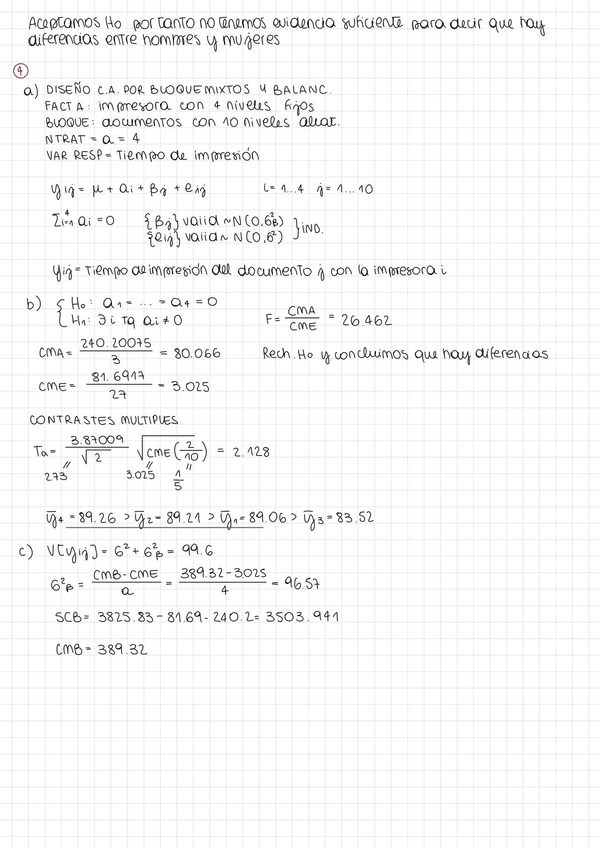 Aceptamos Ho por tanto no tenemos evidencia suficiente para decir que hay
diferencias entre hombres y mujeres
4
a) DISEÑO C.A. POR BLOQUE MIXTOS Y BALANC.
FACT A: impresora con 4 niveles fijos
BLOQUE: documentos con 10 niveles aleat.
NTRAT = a = 4
VAR RESP = Tiempo de impresión
yij = μ + ai + βj + eij i = 1...4 j = 1...10
∑⁴ᵢ₌₁ ai = 0 {βj} vaiid ~ N(0,6²β)
{eij} vaiid ~ N(0,6²) } IND.
yij = Tiempo de impresión del documento j con la impresora i
b) { Ho: a1 = ... = a4 = 0
H1: ∃ i Tq ai ≠ 0 F = CMA/CME = 26.462
CMA = 240.20075/3 = 80.066 Rech. Ho y concluimos que hay diferencias
CME = 81.6917/27 = 3.025
CONTRASTES MULTIPLES
Ta = 3.87009/√2 √CME(2/10) = 2.128
2.73 3.025 1/5
ȳ4 = 89.26 > ȳ2 = 89.21 > ȳ1 = 89.06 > ȳ3 = 83.52
c) V[yij] = 6² + 6²β = 99.6
6²β = CMB-CME/a = 389.32-3.025/4 = 96.57
SCB = 3825.83 - 81.69 - 240.2 = 3503.941
CMB = 389.32